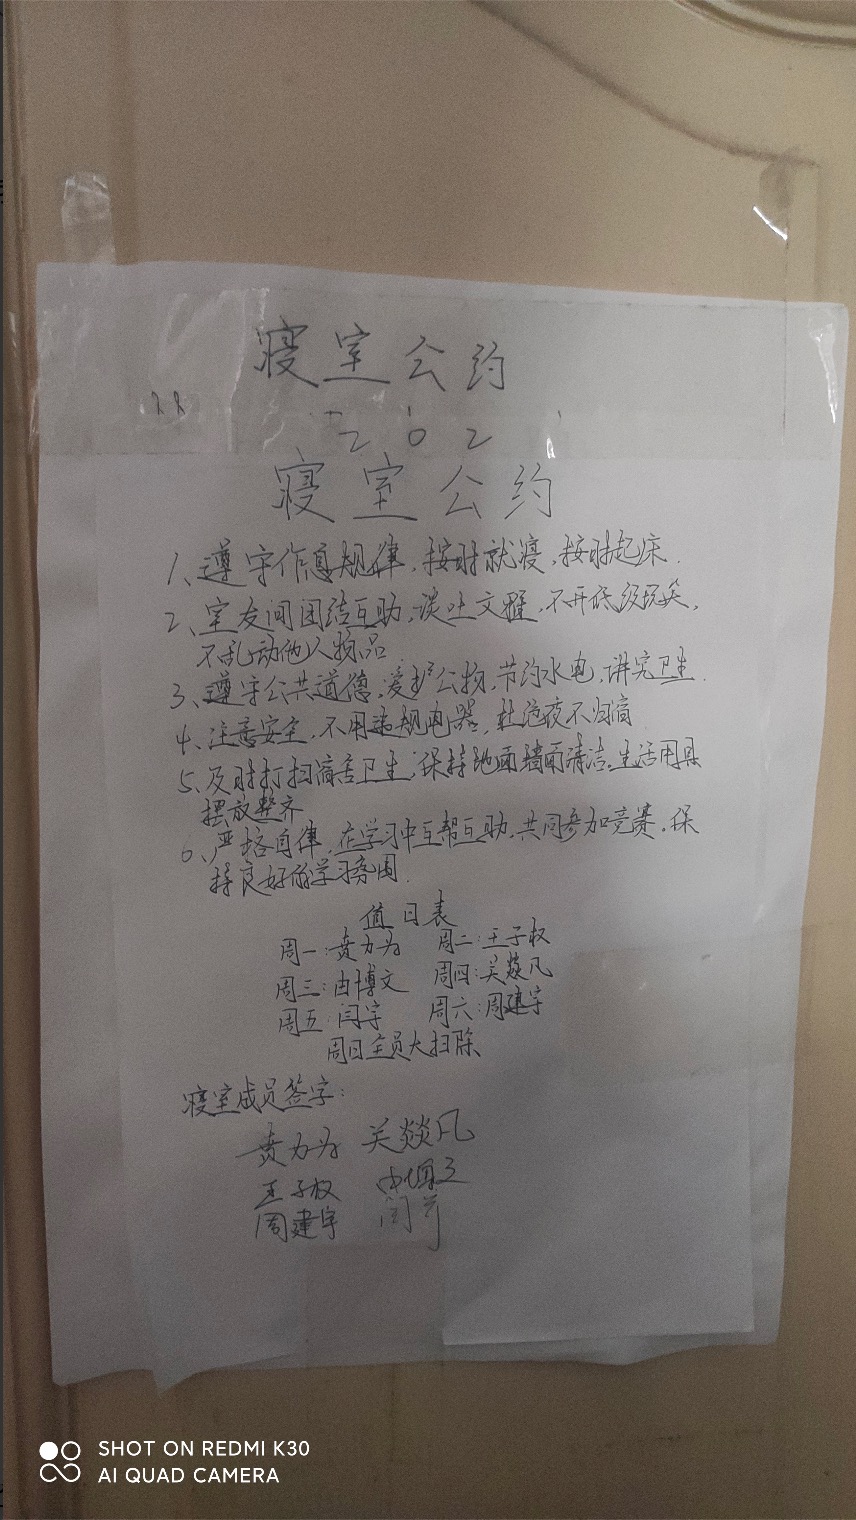 寝室公约
202
寝室公约
1、遵守作息规律，按时就寝，按时起床．
2、室友间团结互助，谈吐文雅，不开低级玩笑，
不乱动他人物品
3、遵守公共道德，爱护公物，节约水电，讲究卫生．
4、注意安全，不用违规电器，杜绝夜不归宿
5、及时打扫宿舍卫生，保持地面墙面清洁，生活用具
摆放整齐
6、严格自律，在学习中互帮互助，共同参加竞赛，保
持良好的学习氛围．
值日表
周一：贲力为 周二：王子权
周三：由博文 周四：吴燚凡
周五：闫宇 周六：周建宇
周日全员大扫除
寝室成员签字：
贲力为 吴燚凡
王子权
周建宇 闫宇
SHOT ON REDMI K30
AI QUAD CAMERA